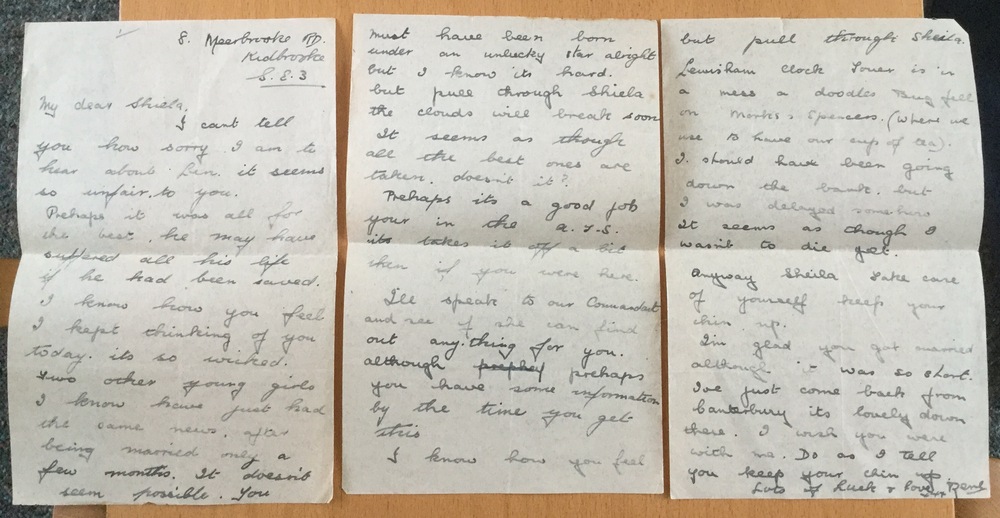 8. Meerbrooke RD.
Kidbrooke
S.E.3
My dear Shiela,
I cant tell
you how sorry I am to
hear about Len. it seems
so unfair. to you.
Prehaps it was all for
the best. he may have
suffered all his life
if he had been saved.
I know how you feel
I kept thinking of you
today. its so wicked.
Two other young girls
I know have just had
the same news. after
being married only a
few months. It doesn't
seem possible. You
must have been born
under an unlucky star alright
but I know its hard.
but pull through Shiela
the clouds will break soon
It seems as though
all the best ones are
taken. doesn't it?
Prehaps its a good job
your in the A.T.S.
its takes it off a bit
then if you were here.
I'll speak to our Commandant
and see if she can find
out any.thing for you.
although prehaps
you have some information
by the time you get
this
I know how you feel
but pull through Sheila.
Lewisham Clock Tower is in
a mess a doodle Bug fell
on Marks & Spencers. (where we
use to have our cup of tea).
I should have been going
down the bank. but
I was delayed somehow
It seems as though I
wasn't to die yet.
Anyway Sheila take care
of yourself keep your
chin up.
I'm glad you got married
although it was so short.
I've just come back from
Canterbury its lovely down
there. I wish you were
with me. Do as I tell
you keep your chin up
Lots of luck & love Rene